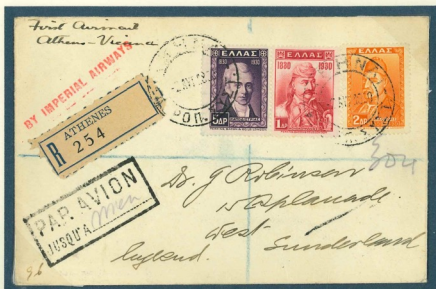 First Airmail
Athens - Vienna
BY IMPERIAL AIRWAYS
R
ATHENES
254
ΕΛΛΑΣ
1830 1930
5ΔΡ
ΕΛΛΑΣ
1830 1930
1ΔΡ
ΕΛΛΑΣ
2ΔΡ
PAR AVION
JUSQU'A Wien
304
Dr. G Robinson
10 Esplanade
West Sunderland
England.